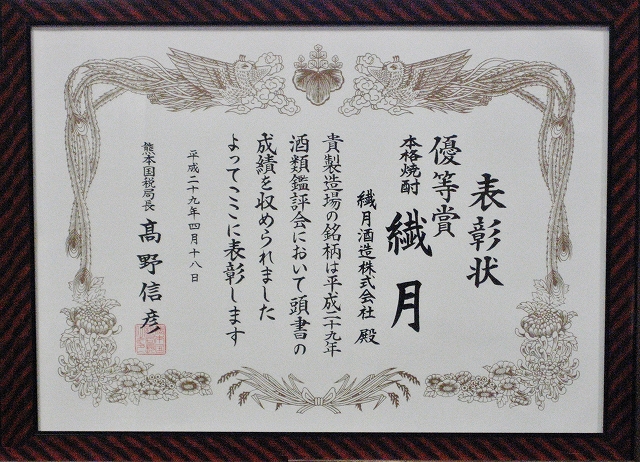 表彰状
優等賞
本格焼酎 繊月
繊月酒造株式会社 殿
貴製造場の銘柄は平成二十九年
酒類鑑評会において頭書の
成績を収められました
よってここに表彰します
平成二十九年四月十八日
熊本国税局長 髙野信彦